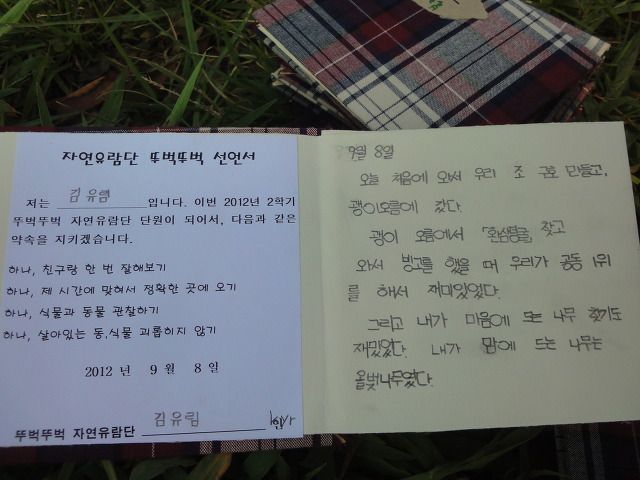 자연유람단 뚜벅뚜벅 선언서
저는 김유림 입니다. 이번 2012년 2학기
뚜벅뚜벅 자연유람단 단원이 되어서, 다음과 같은
약속을 지키겠습니다.
하나, 친구랑 한 번 잘해보기
하나, 제 시간에 맞혀서 정확한 곳에 오기
하나, 식물과 동물 관찰하기
하나, 살아있는 동,식물 괴롭히지 않기
2012 년 9 월 8 일
뚜벅뚜벅 자연유람단 김유림
9월 8일
오늘 처음에 와서 우리 조 구호 만들고,
괭이오름에 갔다.
괭이 오름에서 「환삼덩굴」 찾고
와서 빙고를 했을 때 우리가 공동 1위
를 해서 재미있었다.
그리고 내가 마음에 드는 나무 찾기도
재밌었다. 내가 맘에 드는 나무는
올벚나무였다.